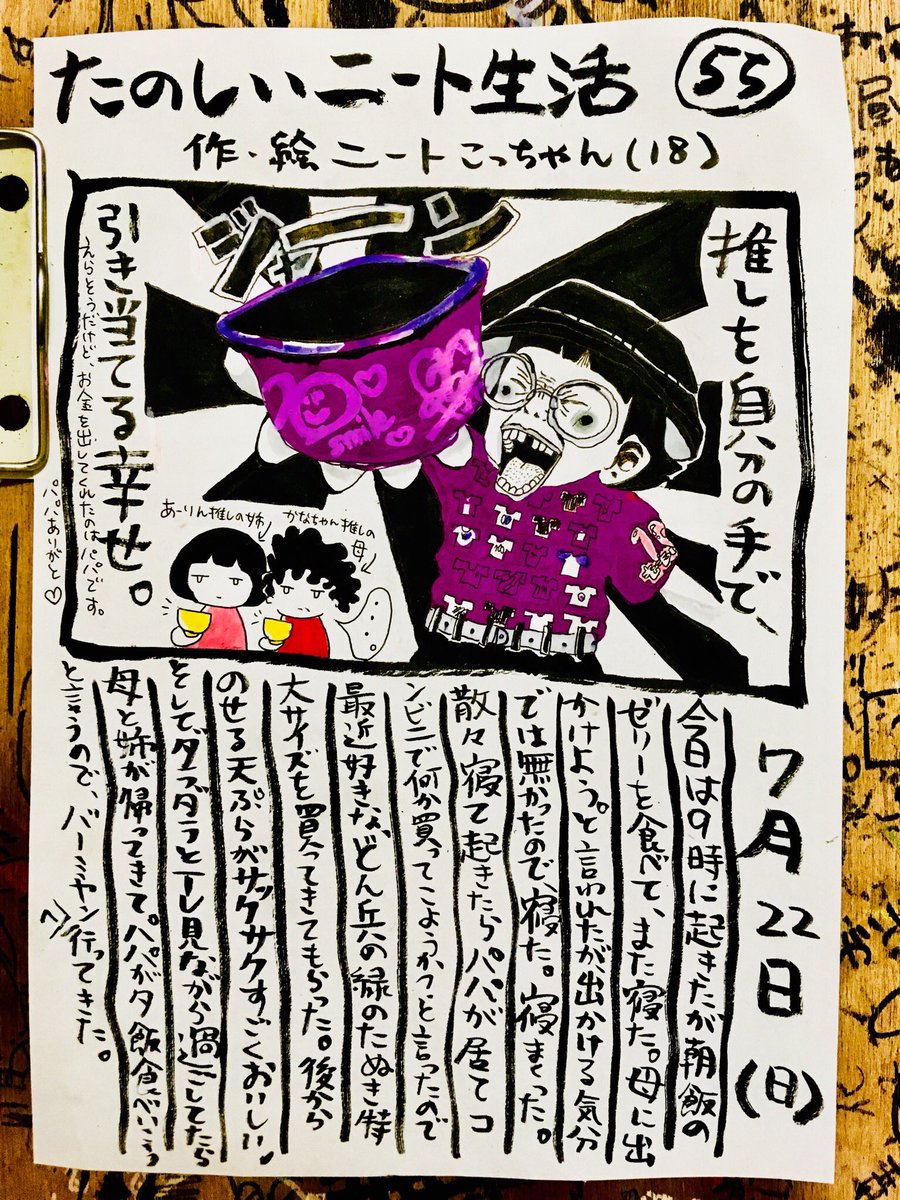 たのしいニート生活 55
作・絵 ニートこっちゃん(18)
推しを自分の手で、
引き当てる幸せ。
えらそうだけど、お金を出してくれたのはパパです。
パパありがと♡
ジャーン
smile
あーりん推しの姉
かなちゃん推しの母
7月22日(日)
今日は9時に起きたが朝飯の
ゼリーを食べて、また寝た。母に出
かけよう。と言われたが出かける気分
では無かったので、寝た。寝まくった。
散々寝て起きたらパパが居てコ
ンビニで何か買ってこようかっと言ったので
最近好きな、どん兵の緑のたぬき特
大サイズを買ってきてもらった。後から
のせる天ぷらがサックサクすごくおいしい!
そしてダラダラとテレ見ながら過ごしてたら
母と姉が帰ってきてパパが夕飯食べいこう
と言うので、バーミヤン行ってきた。